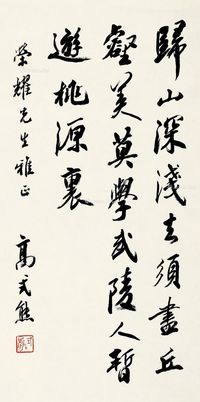 歸山深淺去須盡丘
壑美莫學武陵人暫
遊桃源裏
榮耀先生雅正
高式熊